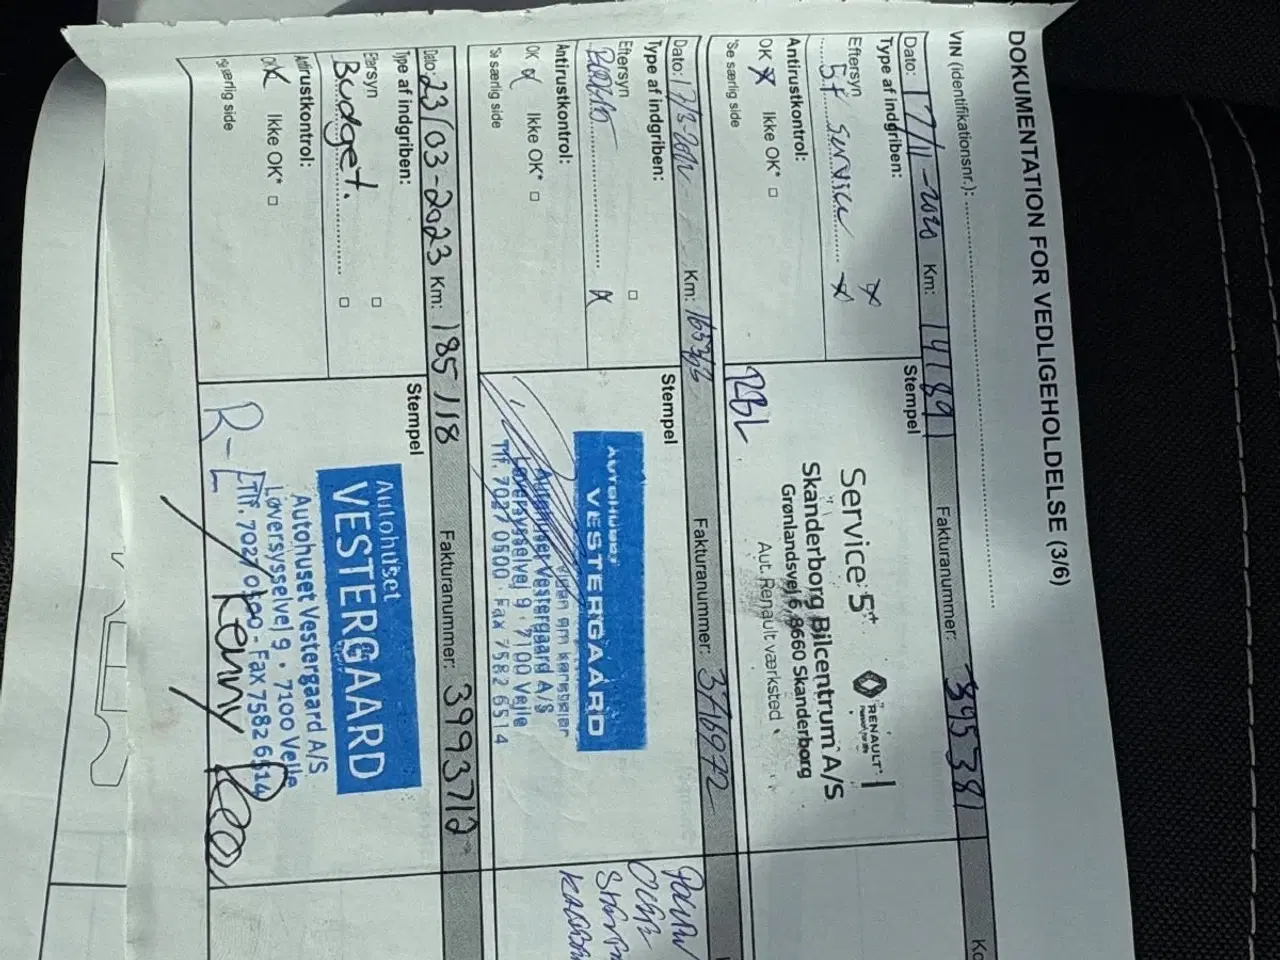 DOKUMENTATION FOR VEDLIGEHOLDELSE (3/6)
VIN (identifikationsnr.):
Dato: 17/11-2020 Km: 141891 Fakturanummer: 395381
Type af indgriben:
Eftersyn
5+ service
Antirustkontrol:
OK Ikke OK*
*Se særlig side
Stempel
RBL
Service 5+
RENAULT
Skanderborg Bilcentrum A/S
Grønlandsvej 6, 8660 Skanderborg
Aut. Renault værksted
Dato: Km: Fakturanummer: 3716972
Type af indgriben:
Eftersyn
Antirustkontrol:
OK Ikke OK*
*Se særlig side
Stempel
AUTOHUSET
VESTERGAARD
Autohuset Vestergaard A/S
Løversysselvej 9 · 7100 Vejle
Tlf. 7027 0500 Fax 7582 6514
Dato: 23/03-2023 Km: 185118 Fakturanummer: 3993712
Type af indgriben:
Eftersyn
Budget.
Antirustkontrol:
OK Ikke OK*
*Se særlig side
Stempel
Autohuset
VESTERGAARD
Autohuset Vestergaard A/S
Løversysselvej 9 · 7100 Vejle
Tlf. 7027 0500 - Fax 7582 6514